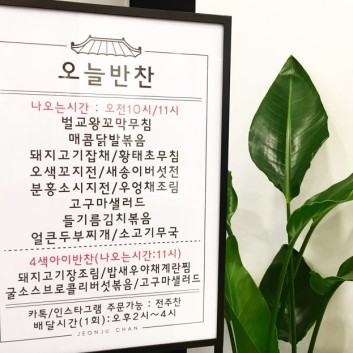 오늘반찬
나오는시간 : 오전10시/11시
벌교왕꼬막무침
매콤닭발볶음
돼지고기잡채/황태초무침
오색꼬지전/새송이버섯전
분홍소시지전/우엉채조림
고구마샐러드
들기름김치볶음
얼큰두부찌개/소고기무국
4색아이반찬(나오는시간:11시)
돼지고기장조림/밥새우야채계란찜
굴소스브로콜리버섯볶음/고구마샐러드
카톡/인스타그램 주문가능 : 전주찬
배달시간(1회):오후2시~4시
JEONJU CHAN